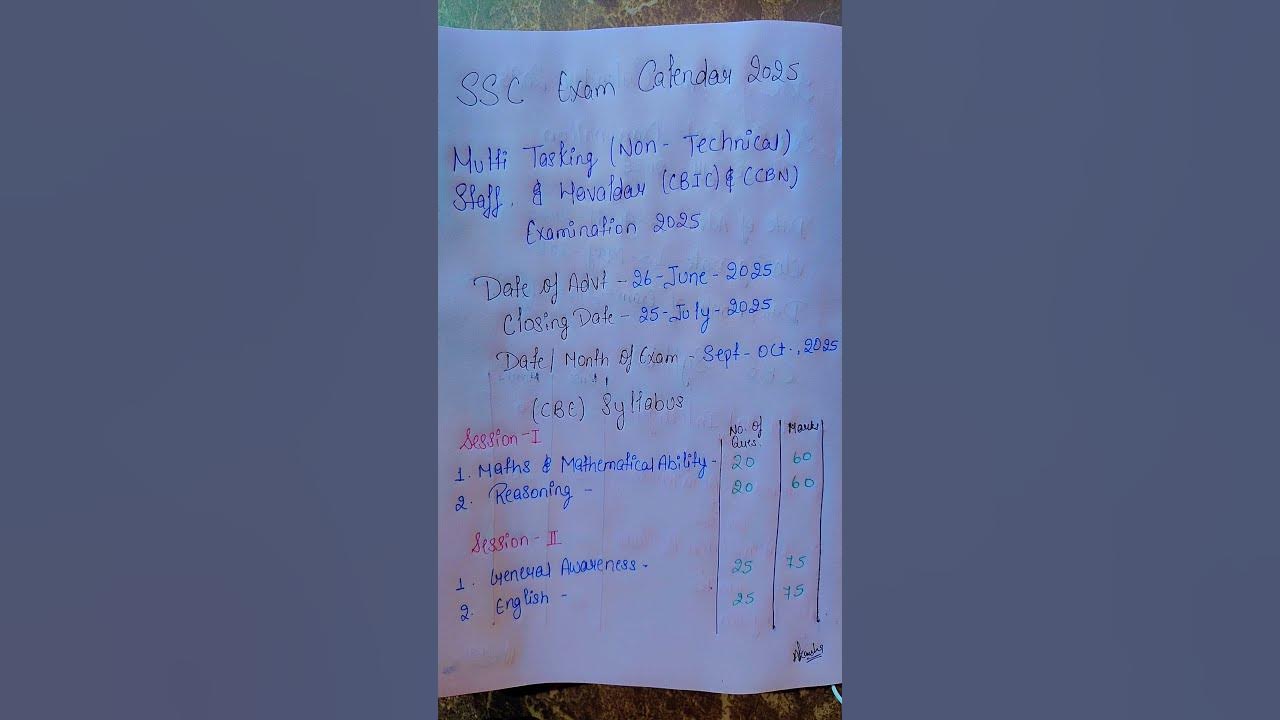 SSC Exam Calendar 2025
Multi Tasking (Non- Technical)
Staff. & Havaldar (CBIC) & (CBN)
Examination 2025
Date of Advt - 26-June-2025
Closing Date - 25-July-2025
Date/Month of Exam - Sept-Oct., 2025
(CBE) Syllabus
Session-I
No. of Ques. Marks
1. Maths & Mathematical Ability - 20 60
2. Reasoning - 20 60
Session-II
1. General Awareness - 25 75
2. English - 25 75